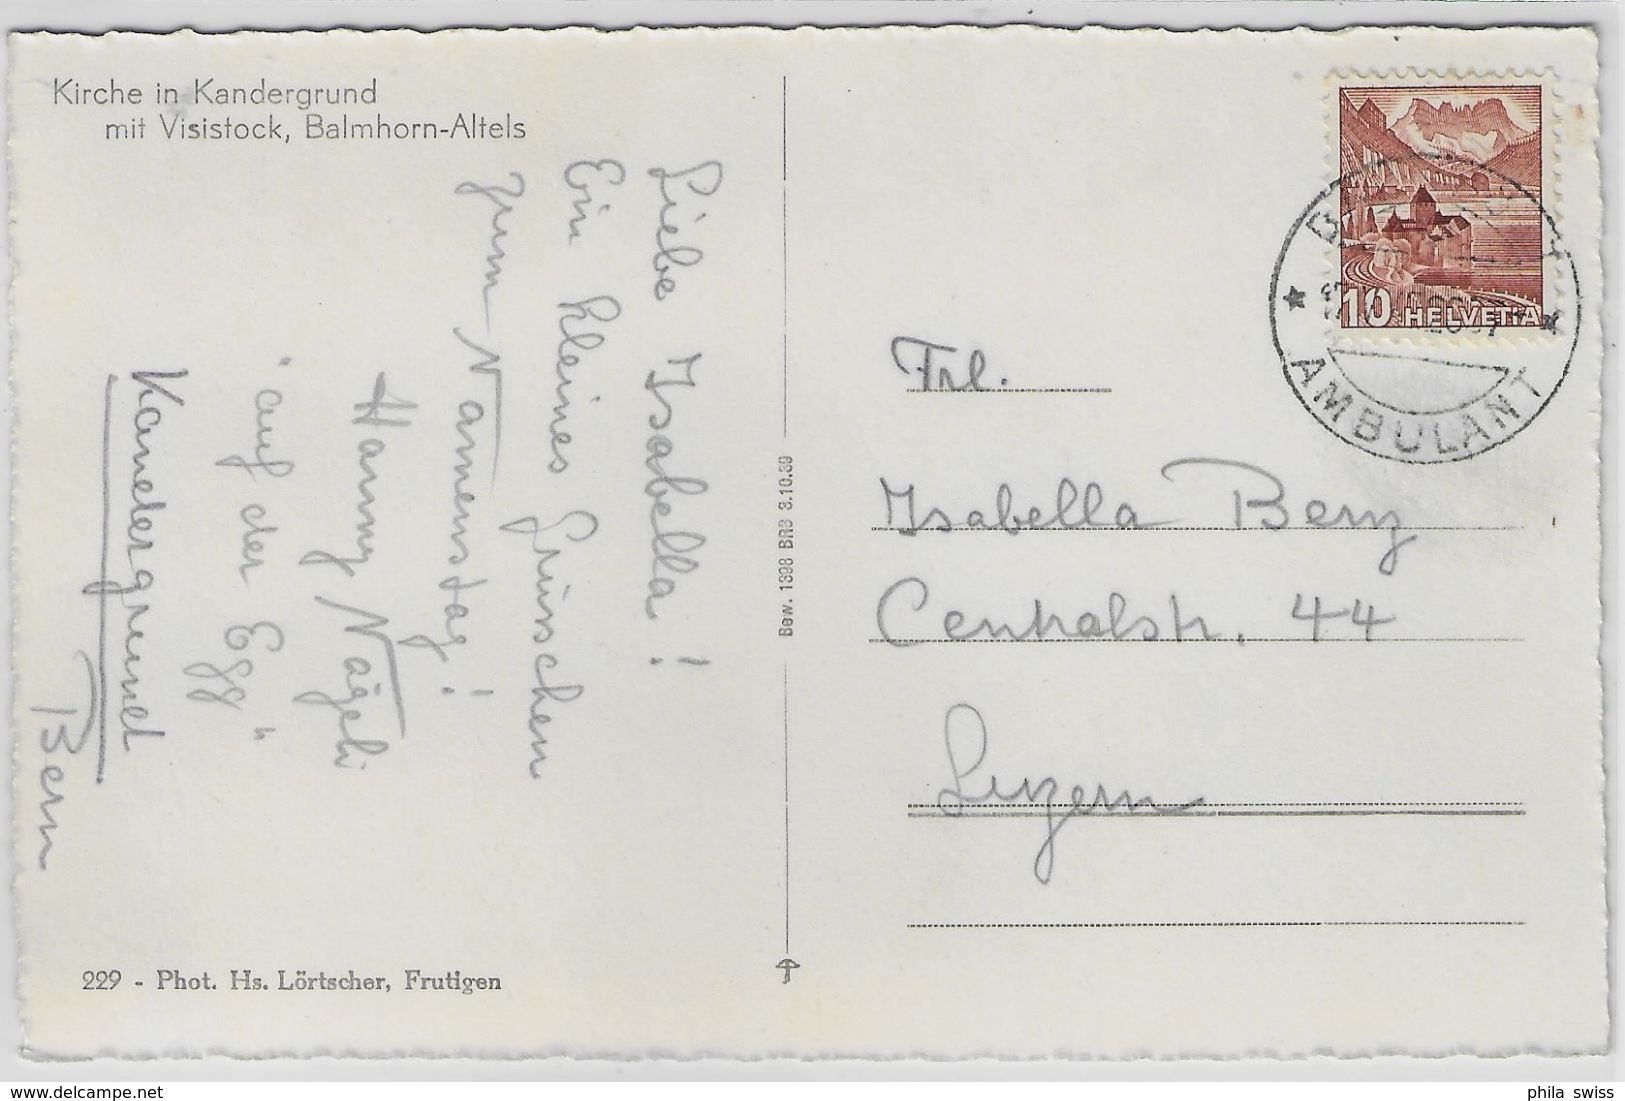 Kirche in Kandergrund
mit Visistock, Balmhorn-Altels
Liebe Isabella!
Ein kleines Grüsschen
zum Namenstag!
Hanny Nägeli
"auf der Egg"
Kandergrund
Bern
229 - Phot. Hs. Lörtscher, Frutigen
Bew. 1398 BRB 3.10.39
10 HELVETIA
AMBULANT
Frl.
Isabella Berz
Centralstr. 44
Luzern
phila swiss